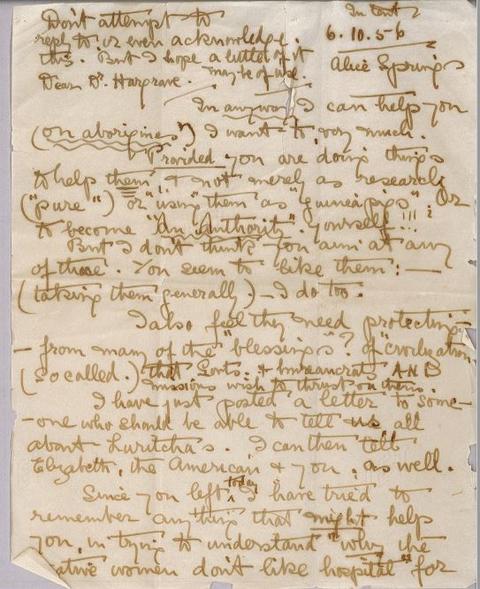 Don't attempt to
reply to or even acknowledge
this. But I hope a little of it
may be of use.
In tent
6.10.56
Alice Springs
Dear Dr. Hargrave.
In any way I can help you
(on aborigines") I want to, very much.
Provided you are doing things
to help them, & not merely as research
("pure") or using them as "guinea pigs". Or
to become "An Authority". Yourself!!!
But I don't think you aim at any
of these. You seem to like them: —
(taking them generally) — I do too.
I also feel they need protecting
— from many of the "blessings"? of "civilization
(so called.) that Govts: & bureaucrats AND
missions wish to thrust on them.
I have just posted a letter to some-
-one who should be able to tell us all
about Luritcha's. I can then tell
Elizabeth, the American & you, as well.
Since you left, today I have tried to
remember anything that might help
you, in trying to understand "why the
native women don't like hospital" for